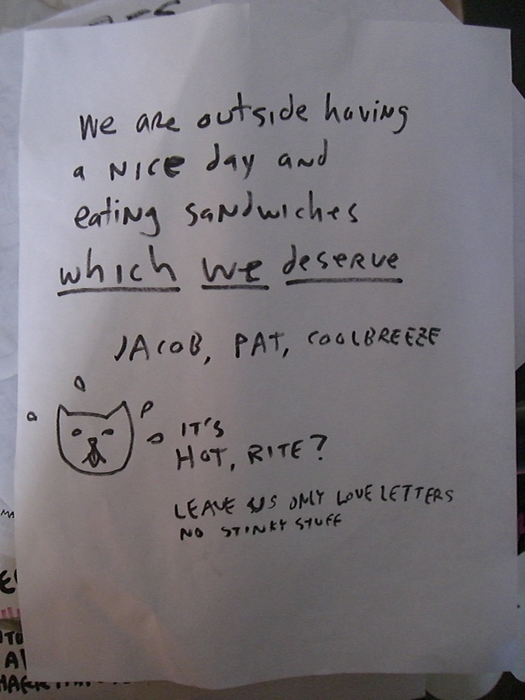 We are outside having
a NICE day and
eating SaNdwiches
which we deserve
JACOB, PAT, COOLBREEZE
IT'S
HOT, RITE?
LEAVE US ONLY LOVE LETTERS
NO STINKY STUFF